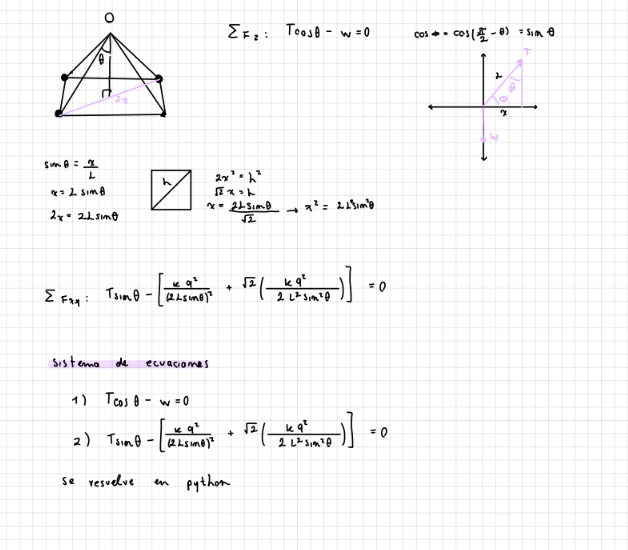 O
θ
2x
Σ Fz: Tcosθ - w = 0
cos Φ = cos(π/2 - θ) = sin θ
T
L
θ
Φ
x
W
sinθ = x/L
x = L sinθ
2x = 2L sinθ
h
2x² = h²
√2 x = h
x = 2L sinθ/√2 → x² = 2L² sin²θ
Σ Fxy: Tsinθ - [k q²/(2L sinθ)² + √2 (k q²/2 L² sin²θ)] = 0
sistema de ecuaciones
1) Tcos θ - w = 0
2) Tsinθ - [k q²/(2L sinθ)² + √2 (k q²/2 L² sin²θ)] = 0
se resuelve en python